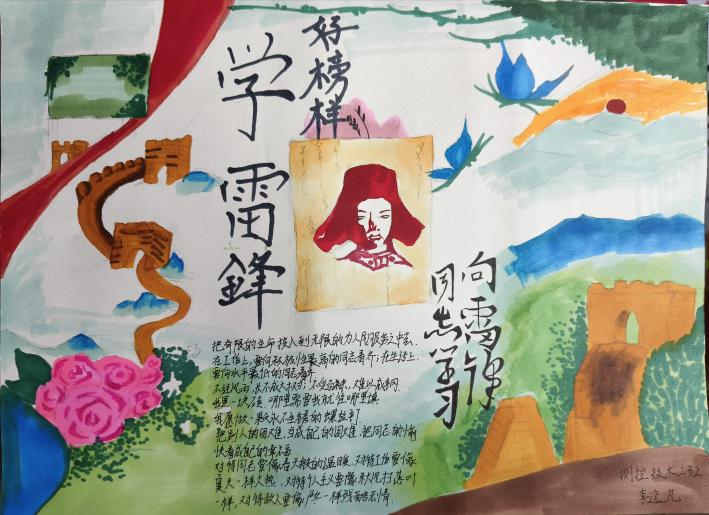 好榜样
学雷鋒
向雷锋
同志学习
把有限的生命投入到无限的为人民服务之中去、
在工作上，要向积极性最高的同志看齐，在生活上，
要向水平最低的同志看齐
不经风雨，长不成大树，不受百炼，难以成钢
我是一块砖 哪里需要我就往哪里填
我愿做一颗永不生锈的螺丝钉
把别人的困难，当成自己的困难，把同志的愉
快看成自己的幸福
对待同志要像春天般的温暖，对待工作要像
夏天一样火热，对待个人主义要像秋风扫落叶
一样，对待敌人要像严冬一样残酷无情.
测控技术
李逸凡